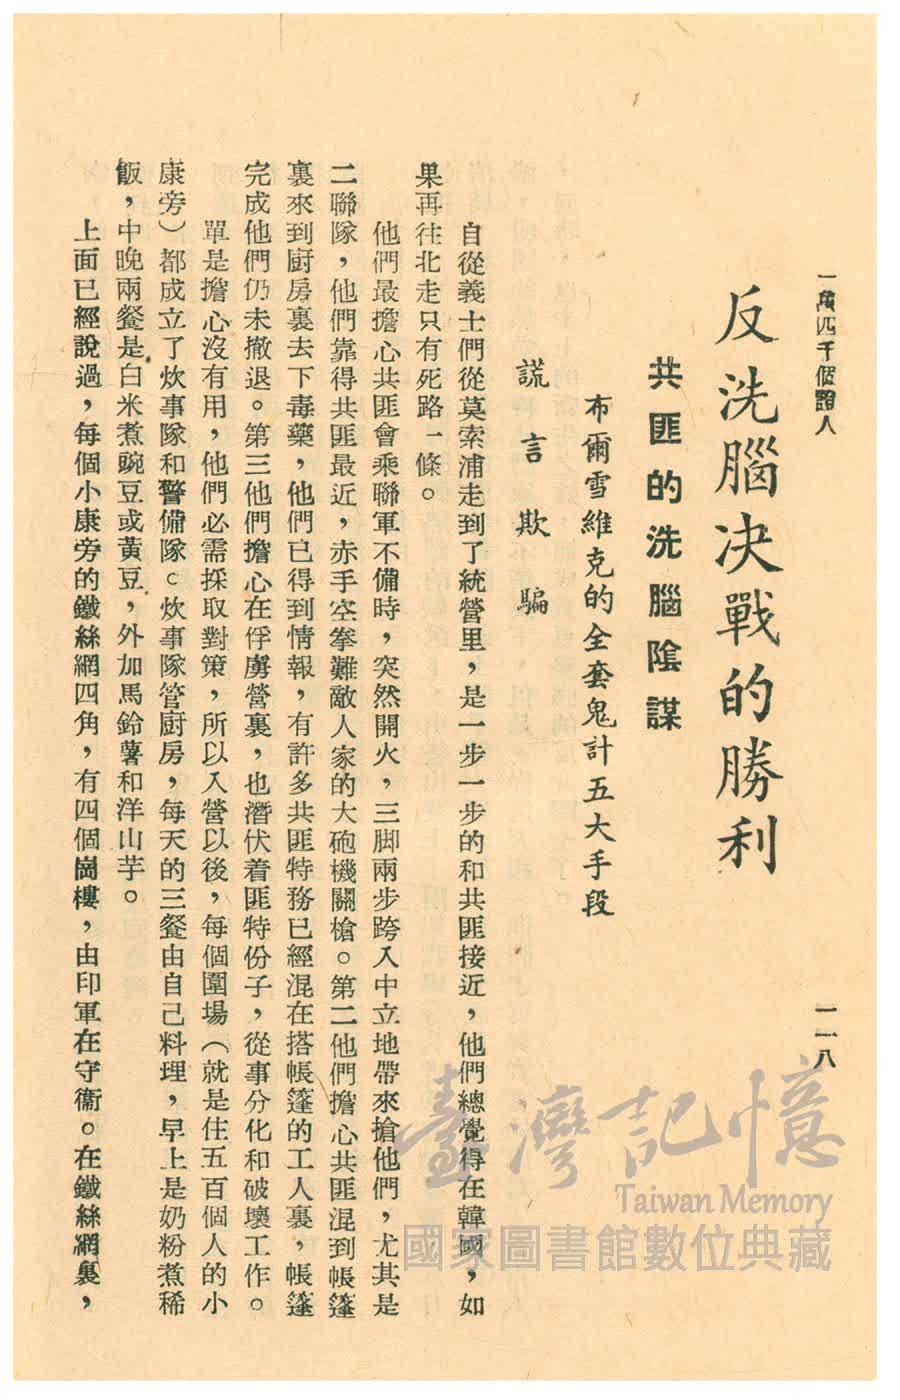 一萬四千個證人
一一八
反洗腦決戰的勝利
共匪的洗腦陰謀
布爾雪維克的全套鬼計五大手段
謊言欺騙
自從義士們從莫索浦走到了統營里，是一步一步的和共匪接近，他們總覺得在韓國，如
果再往北走只有死路一條。
他們最擔心共匪會乘聯軍不備時，突然開火，三脚兩步跨入中立地帶來搶他們，尤其是
二聯隊，他們靠得共匪最近，赤手空拳難敵人家的大砲機關槍。第二他們擔心共匪混到帳篷
裏來到厨房裏去下毒藥，他們已得到情報，有許多共匪特務已經混在搭帳篷的工人裏，帳篷
完成他們仍未撤退。第三他們擔心在俘虜營裏，也潛伏着匪特份子，從事分化和破壞工作。
單是擔心沒有用，他們必需採取對策，所以入營以後，每個圍場（就是住五百個人的小
康旁）都成立了炊事隊和警備隊。炊事隊管厨房，每天的三餐由自己料理，早上是奶粉煮稀
飯，中晚兩餐是白米煮豌豆或黃豆，外加馬鈴薯和洋山芋。
上面已經說過，每個小康旁的鐵絲網四角，有四個崗樓，由印軍在守衞。在鐵絲網裏，
臺灣記憶
Taiwan Memory
國家圖書館數位典藏